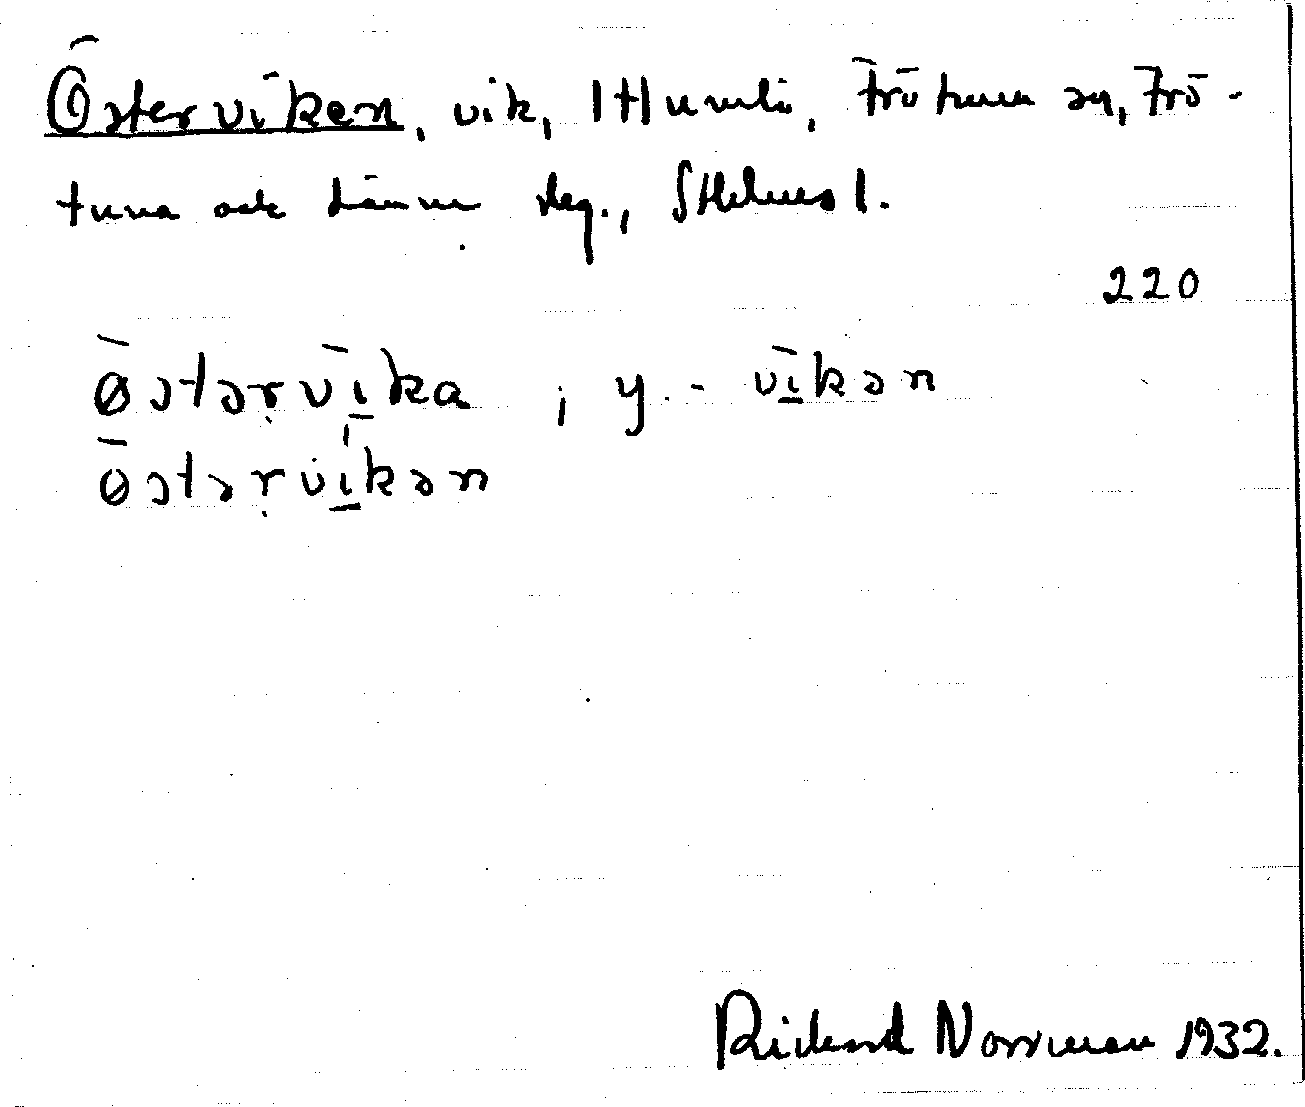 Österviken, vik, 1 Humla, Frötuna sn, Frö-
tuna och Länna skg., Sthlms l.
220
østərvi̱ka ; y. - vi̱kən
østərvi̱kən
Rickard Norrman 1932.